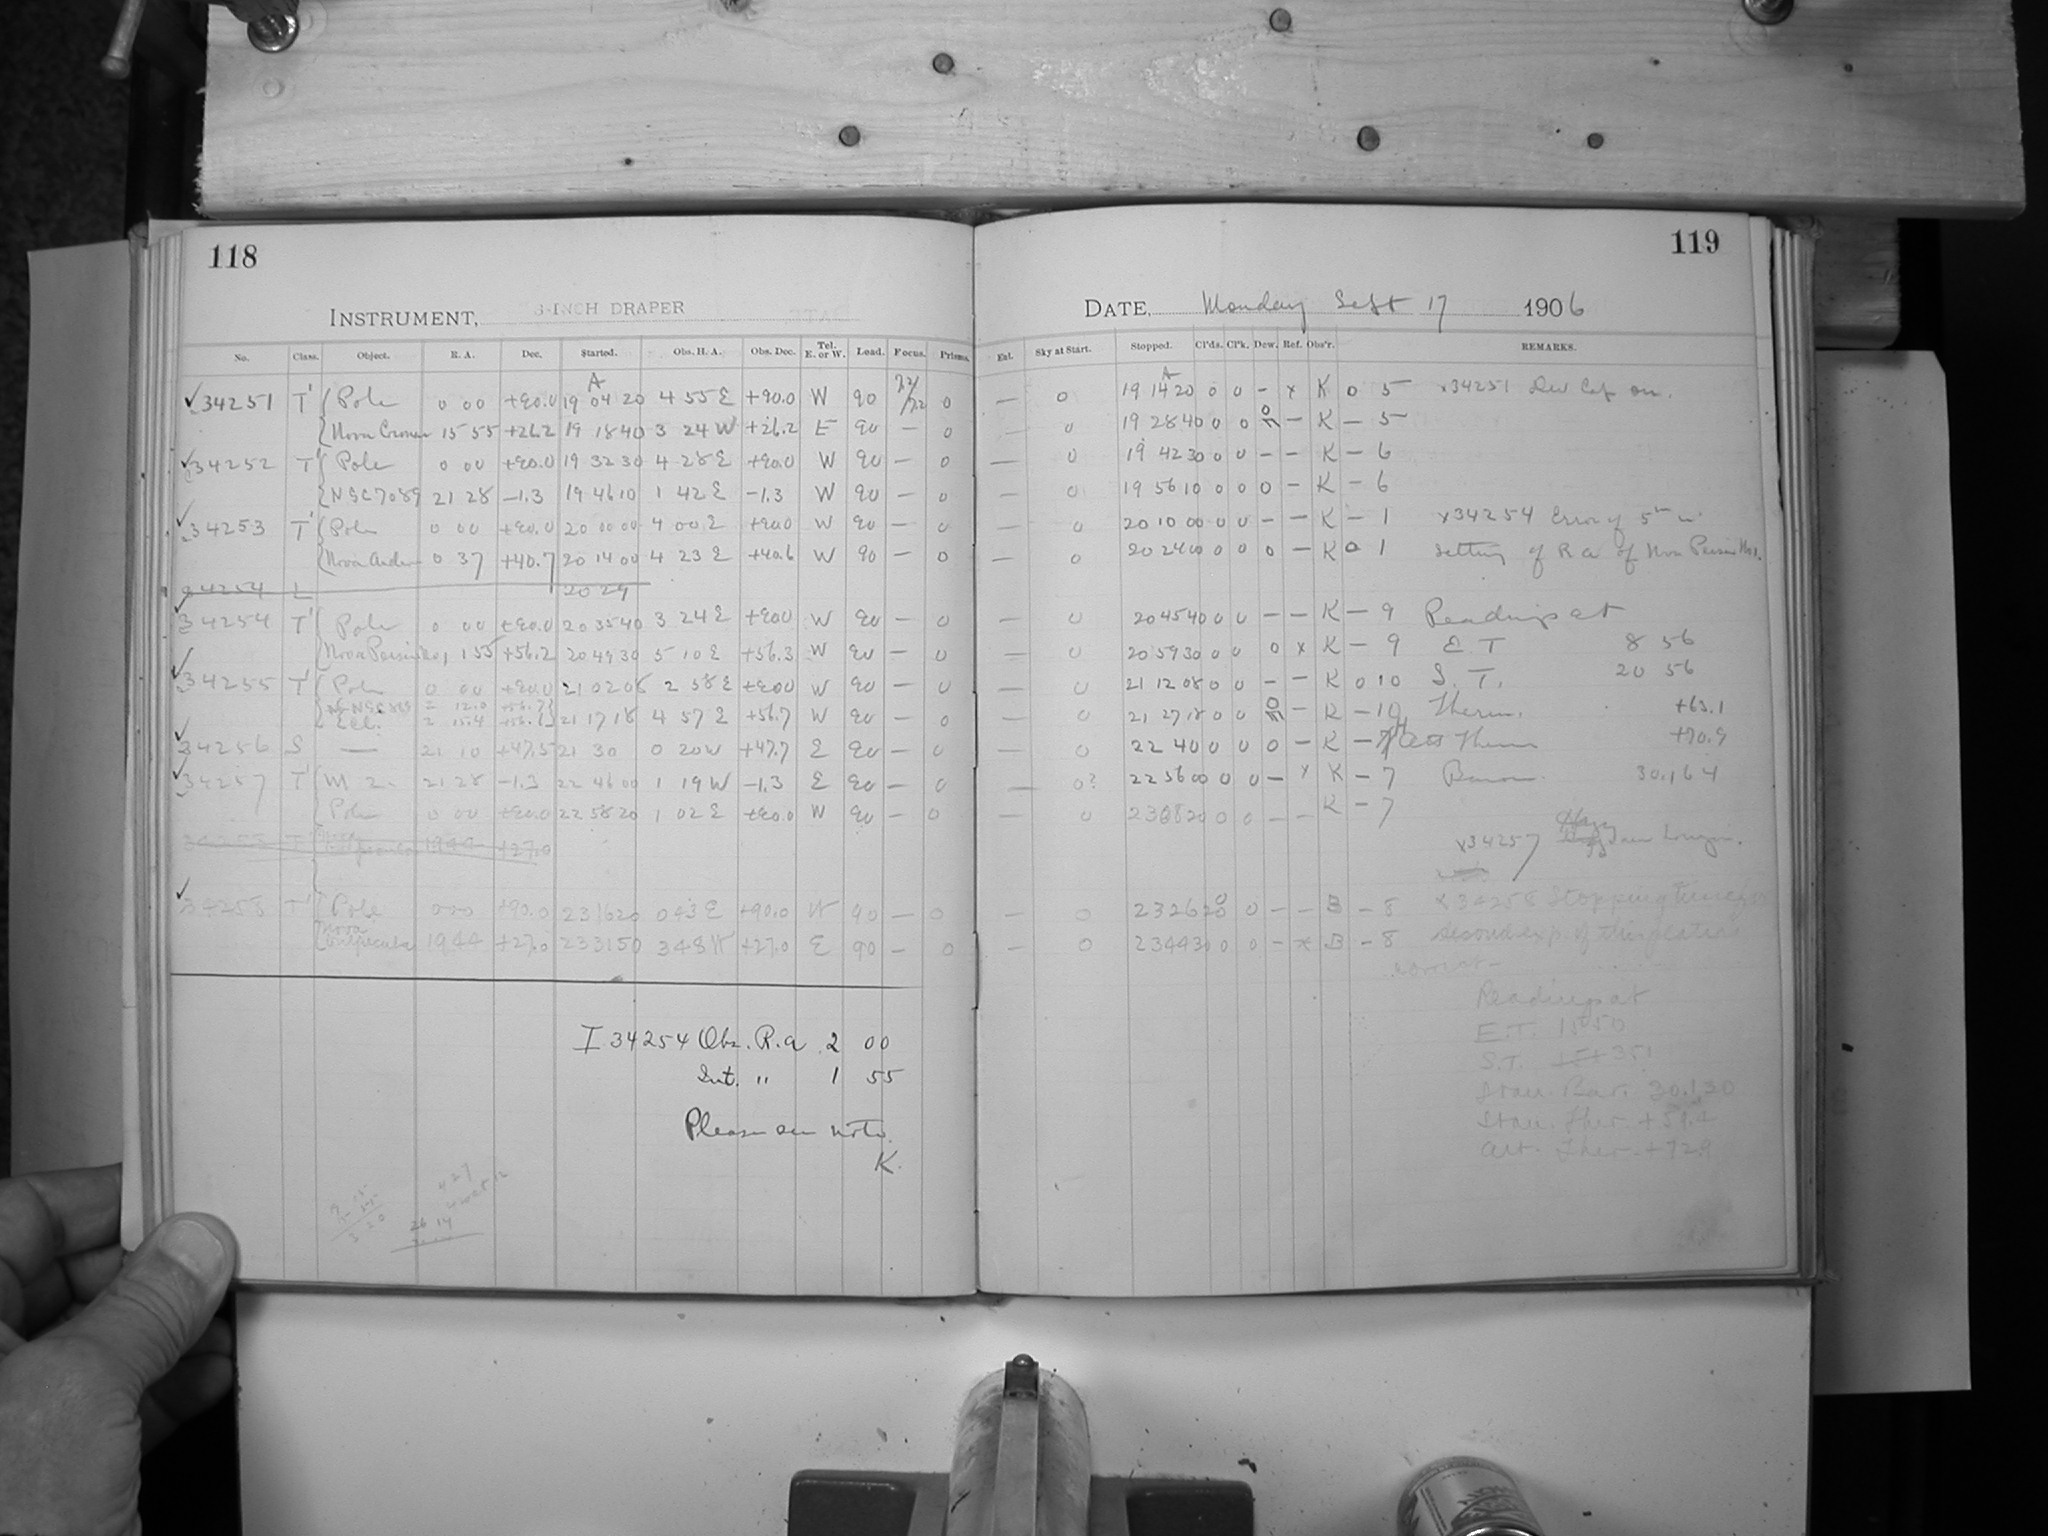 118
119
INSTRUMENT, 8-INCH DRAPER
DATE, Monday Sept 17 1906
No. Class. Object. R. A. Dec. Started. Obs. H. A. Obs. Dec. Tel. E. or W. Load. Focus. Prisms.
Ent. Sky at Start. Stopped. Cl'ds. Cl'k. Dew. Ref. Obs'r. REMARKS.
34251 T' Pole 0 00 +90.0 19 04 20 4 55 E +90.0 W 90 0
— 0 19 14 20 0 0 - x K 0 5 x34251 Dew Cap on.
15 55 +26.2 19 18 40 3 24 W +26.2 E 90 — 0
— 0 19 28 40 0 0 — K — 5
34252 T' Pole 0 00 +90.0 19 32 30 4 28 E +90.0 W 90 — 0
— 0 19 42 30 0 0 - - K - 6
NGC 7089 21 28 -1.3 19 46 10 1 42 E -1.3 W 90 — 0
— 0 19 56 10 0 0 0 - K - 6
34253 T' Pole 0 00 +90.0 20 00 00 4 00 E +90.0 W 90 — 0
— 0 20 10 00 0 0 - - K - 1 x34254 Error of 5m in
0 37 +40.7 20 14 00 4 23 E +40.6 W 90 — 0
— 0 20 24 00 0 0 0 - K 0 1 setting of R a of Nova Persei No 1.
34254 L 20 29
34254 T' Pole 0 00 +90.0 20 35 40 3 24 E +90.0 W 90 — 0
— 0 20 45 40 0 0 - - K - 9 Readings at
Nova Persei No 1 1 55 +56.2 20 49 30 5 10 E +56.3 W 90 — 0
— 0 20 59 30 0 0 0 x K - 9 E. T 8 56
34255 T' Pole 0 00 +90.0 21 02 08 2 58 E +90.0 W 90 — 0
— 0 21 12 08 0 0 - - K 0 10 S. T. 20 56
NGC 869 2 12.0 +56.7
2 15.4 21 17 18 4 57 E +56.7 W 90 — 0
— 0 21 27 18 0 0 - K - 10 Therm. +63.1
34256 S — 21 10 +47.5 21 30 0 20 W +47.7 E 90 — 0
— 0 22 40 0 0 0 - K - 7 Att Therm +70.9
34257 T' M 2 21 28 -1.3 22 46 00 1 19 W -1.3 E 90 — 0
— 0? 22 56 00 0 0 - x K - 7 Barom. 30.164
Pole 0 00 +90.0 22 58 20 1 02 E +90.0 W 90 — 0
0 23 08 20 0 0 - - K - 7
34258 T' Nova Vulpecula 1944 +27.0
x34257 Hazy
34258 T' Pole 0 00 +90.0 23 16 20 0 43 E +90.0 W 90 — 0
— 0 23 26 20 0 0 - - B - 8 x34258 Stopping time of
Nova Vulpecula 1944 +27.0 23 31 50 3 48 W +27.0 E 90 — 0
— 0 23 44 30 0 0 - x B - 8 second exp. of this plate is
Readings at
E.T. 15 50
S.T. 351
Stan. Bar. 30.130
Stan. Ther. +59.4
Att. Ther. +72.9
I 34254 Obs. R.a 2 00
Int. " 1 55
Please see note.
K.